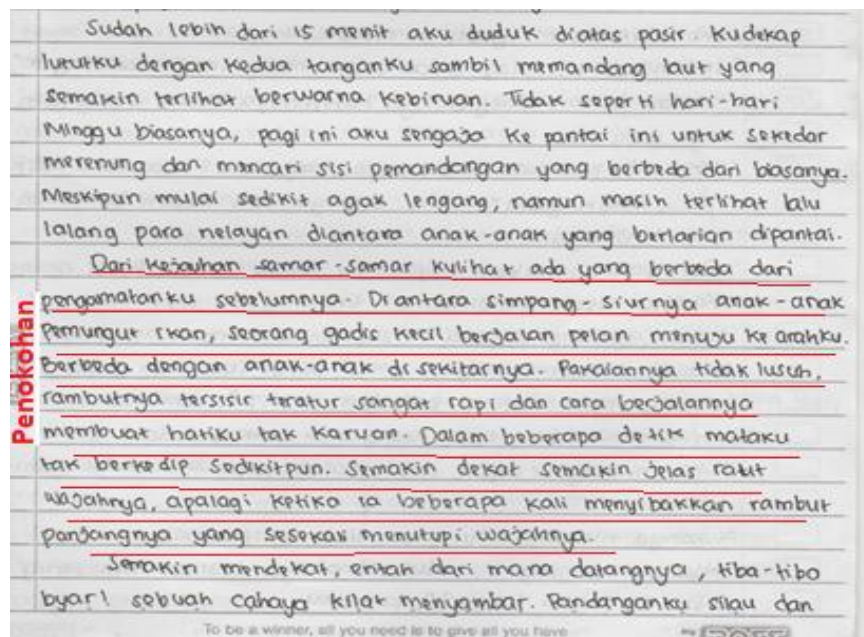 Sudah lebih dari 15 menit aku duduk diatas pasir. Kudekap
lututku dengan kedua tanganku sambil memandang laut yang
semakin terlihat berwarna kebiruan. Tidak seperti hari-hari
Minggu biasanya, pagi ini aku sengaja ke pantai ini untuk sekedar
merenung dan mencari sisi pemandangan yang berbeda dari biasanya.
Meskipun mulai sedikit agak lengang, namun masih terlihat lalu
lalang para nelayan diantara anak-anak yang berlarian dipantai.
Dari kejauhan samar-samar kulihat ada yang berbeda dari
pengamatanku sebelumnya. Diantara simpang-siurnya anak-anak
pemungut ikan, seorang gadis kecil berjalan pelan menuju ke arahku.
Berbeda dengan anak-anak di sekitarnya. Pakaiannya tidak lusuh,
rambutnya tersisir teratur sangat rapi dan cara berjalannya
membuat hatiku tak karuan. Dalam beberapa detik mataku
tak berkedip sedikitpun. Semakin dekat semakin jelas raut
wajahnya, apalagi ketika ia beberapa kali menyibakkan rambut
panjangnya yang sesekali menutupi wajahnya.
Semakin mendekat, entah dari mana datangnya, tiba-tiba
byar! sebuah cahaya kilat menyambar. Pandanganku silau dan
To be a winner, all you need is to give all you have
Penokohan